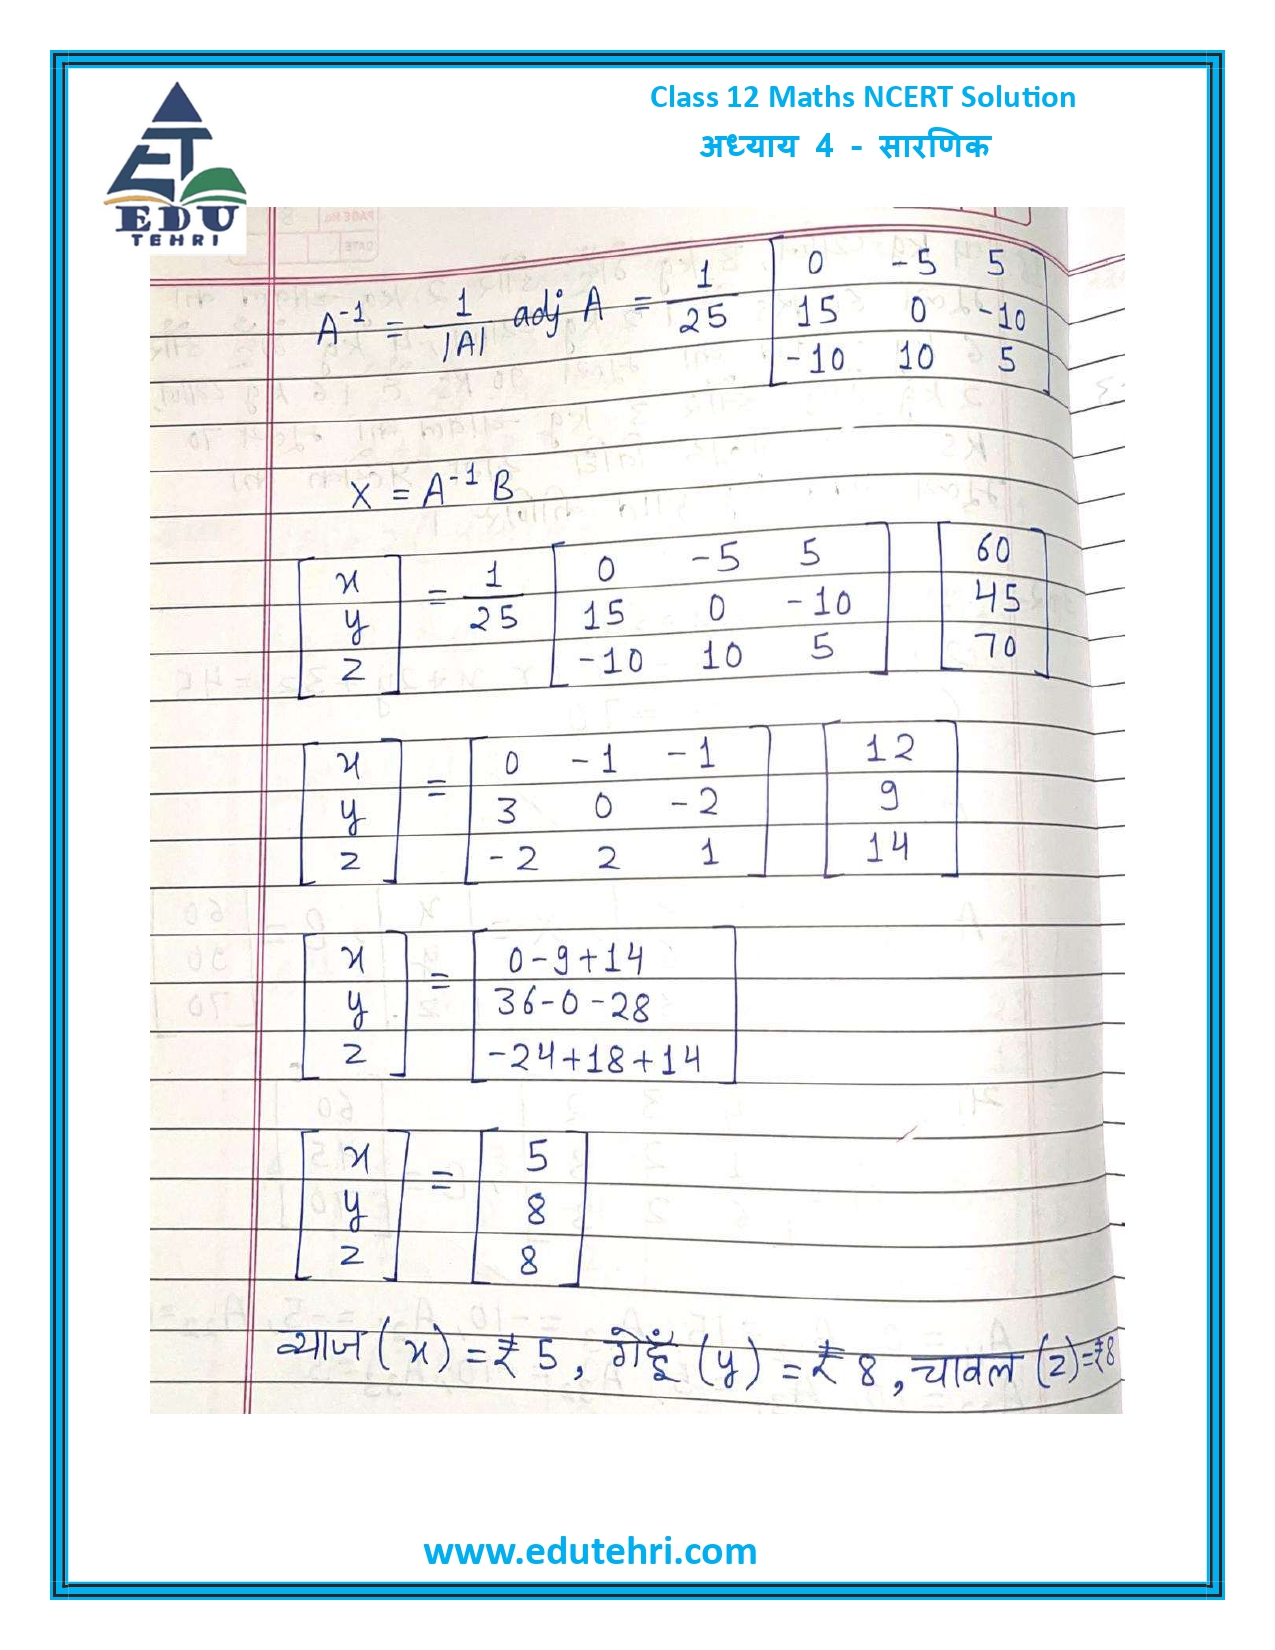 Class 12 Maths NCERT Solution
अध्याय 4 - सारणिक
EDU
TEHRI
A⁻¹ = 1/|A| adj A = 1/25 [0 -5 5
15 0 -10
-10 10 5]
X = A⁻¹ B
[x y z] = 1/25 [0 -5 5
15 0 -10
-10 10 5] [60 45 70]
[x y z] = [0 -1 -1
3 0 -2
-2 2 1] [12 9 14]
[x y z] = [0-9+14
36-0-28
-24+18+14]
[x y z] = [5
8
8]
प्याज (x) = ₹ 5, गेहूँ (y) = ₹ 8, चावल (z) = ₹8
www.edutehri.com